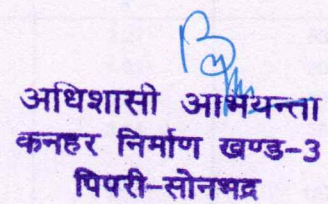 अधिशासी अभियन्ता
कनहर निर्माण खण्ड-3
पिपरी-सोनभद्र